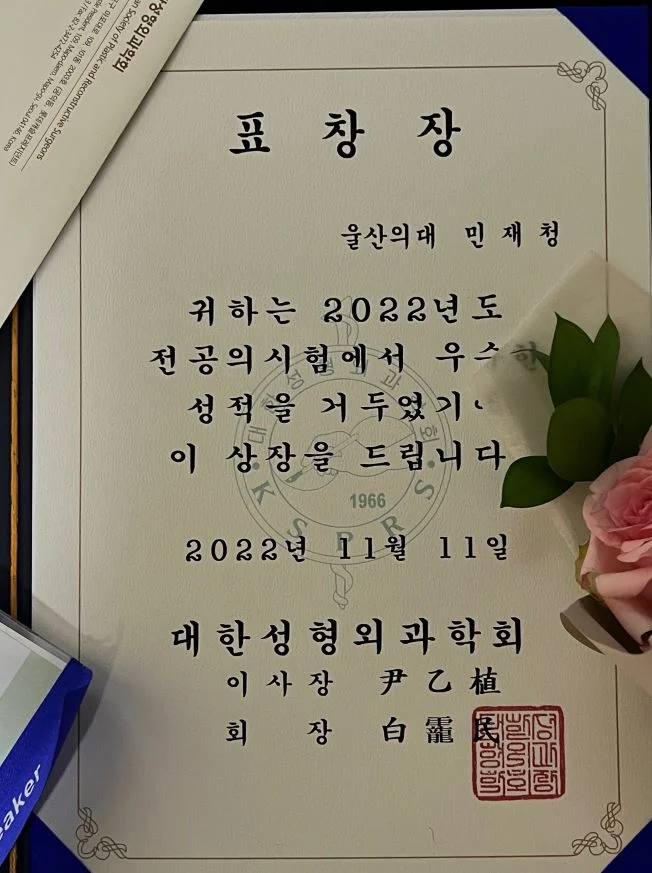 표 창 장
울산의대 민 재 청
귀하는 2022년도
전공의시험에서
성적을
이 상장을 드립니다
2022년 11월 11일
대한성형외과학회
이 사 장 尹 乙 植
회 장 白 民
1966
KSPRS
an Society of Plastic and Reconstructive Surgeons
eaker